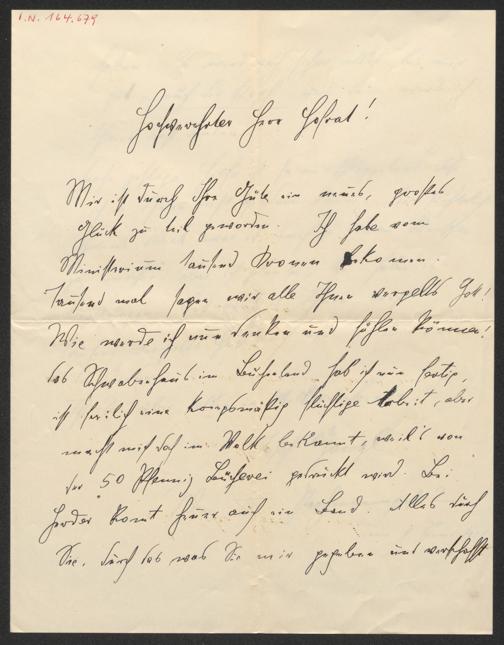 I.N. 164.679
Hochverehrter Herr Hofrat!
Mir ist durch Ihre Güte ein neues, großes
Glück zu teil geworden. Ich habe vom
Ministerium tausend Kronen bekomen.
Tausend mal sagen wir alle Ihnen vergelts Gott!
Wie werde ich nur denken und fühlen können!
Das Schwabenhaus im Buchenland hab ich nun fertig,
ist freilich eine flüchtige Arbeit, aber
macht mich doch im Volk bekannt, weil's von
der 50 Pfennig Bücherei gedruckt wird. Bei
Herder komt heuer auch ein Band. Alles durch
Sie, durch das was Sie mir gegeben und verschafft